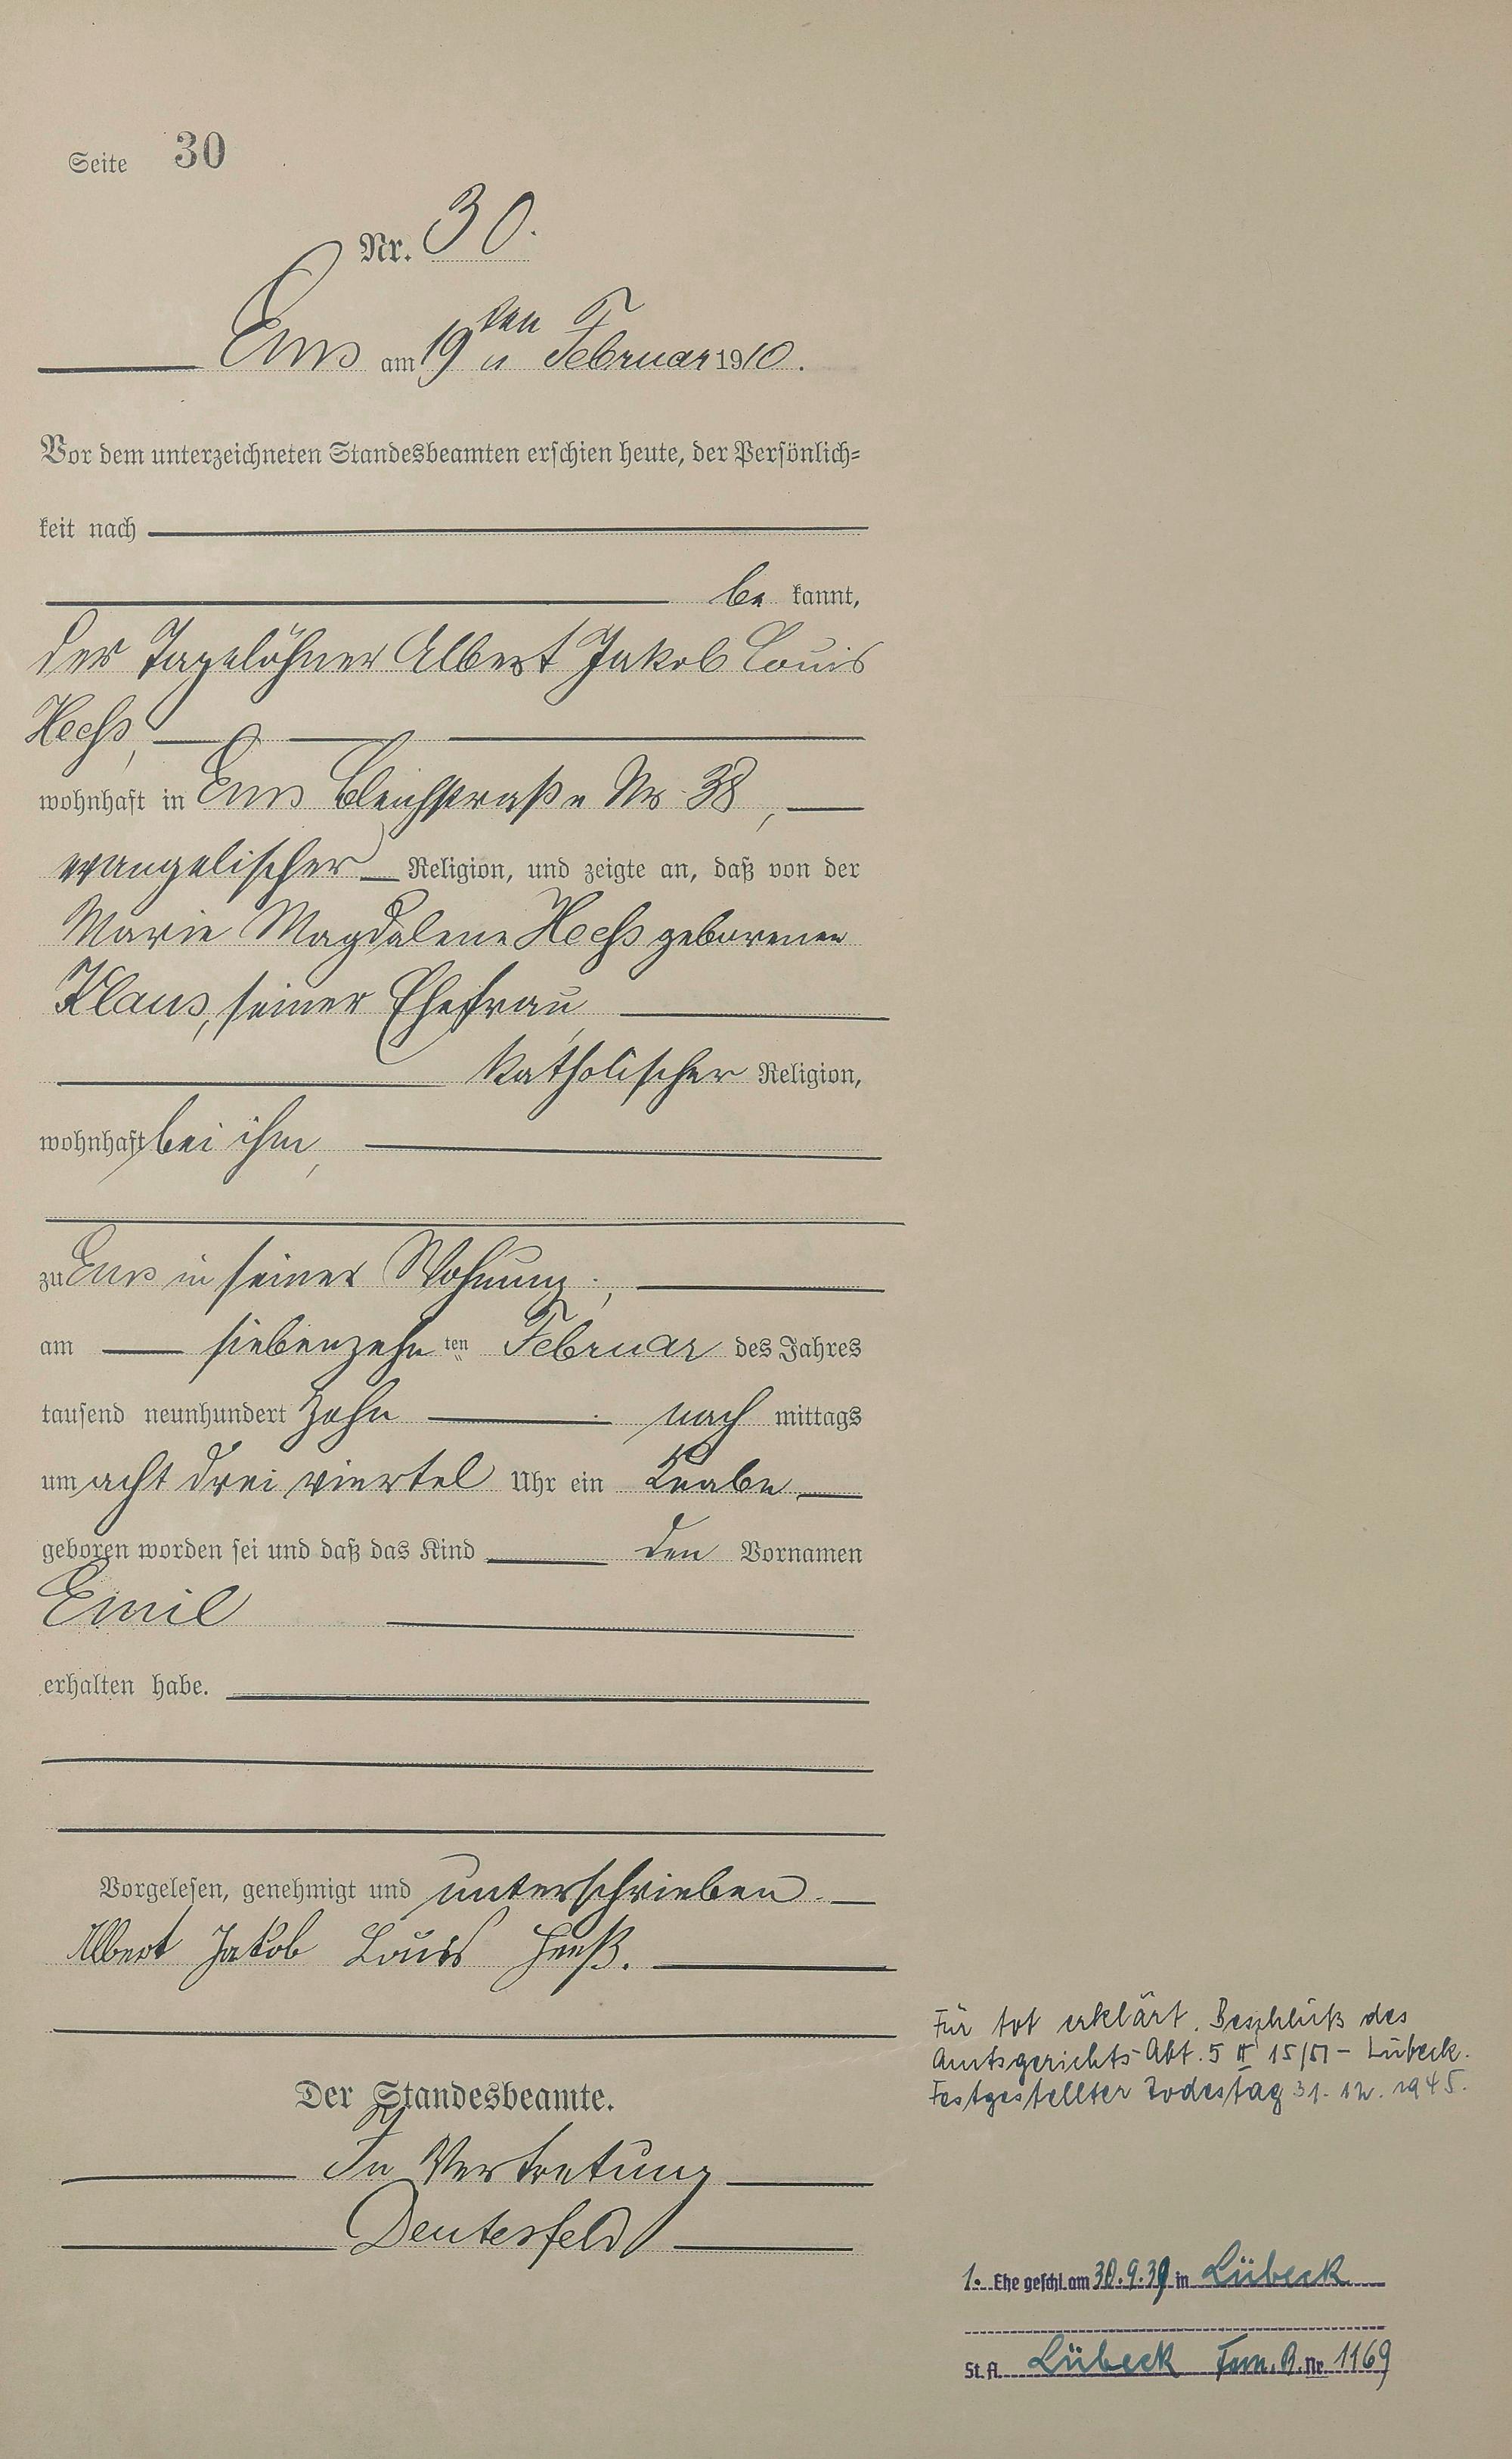 Seite 30
Nr. 30.
Ems am 19ten Februar 1910.
Vor dem unterzeichneten Standesbeamten erschien heute, der Persönlich-
keit nach
be kannt,
der Tagelöhner Albert Jakob Louis
Heeß,
wohnhaft in Ems Bleichstraße Nr. 38,
evangelischer Religion, und zeigte an, daß von der
Marie Magdalene Heeß geborenen
Klaus, seiner Ehefrau,
katholischer Religion,
wohnhaft bei ihm,
zu Ems in seiner Wohnung,
am siebenzehn ten Februar des Jahres
tausend neunhundert zehn nach mittags
um acht drei viertel Uhr ein Knabe
geboren worden sei und daß das Kind den Vornamen
Emil
erhalten habe.
Vorgelesen, genehmigt und unterschrieben.
Albert Jakob Louis Heeß.
Der Standesbeamte.
In Vertretung
Deutesfeld
Für tot erklärt. Beschluß des
Amtsgerichts Abt. 5 II 15/51 - Lübeck.
Festgestellter Todestag 31. 12. 1945.
1. Ehe geschl. am 30.9.39 in Lübeck
St. A. Lübeck Fam. B. Nr. 1169